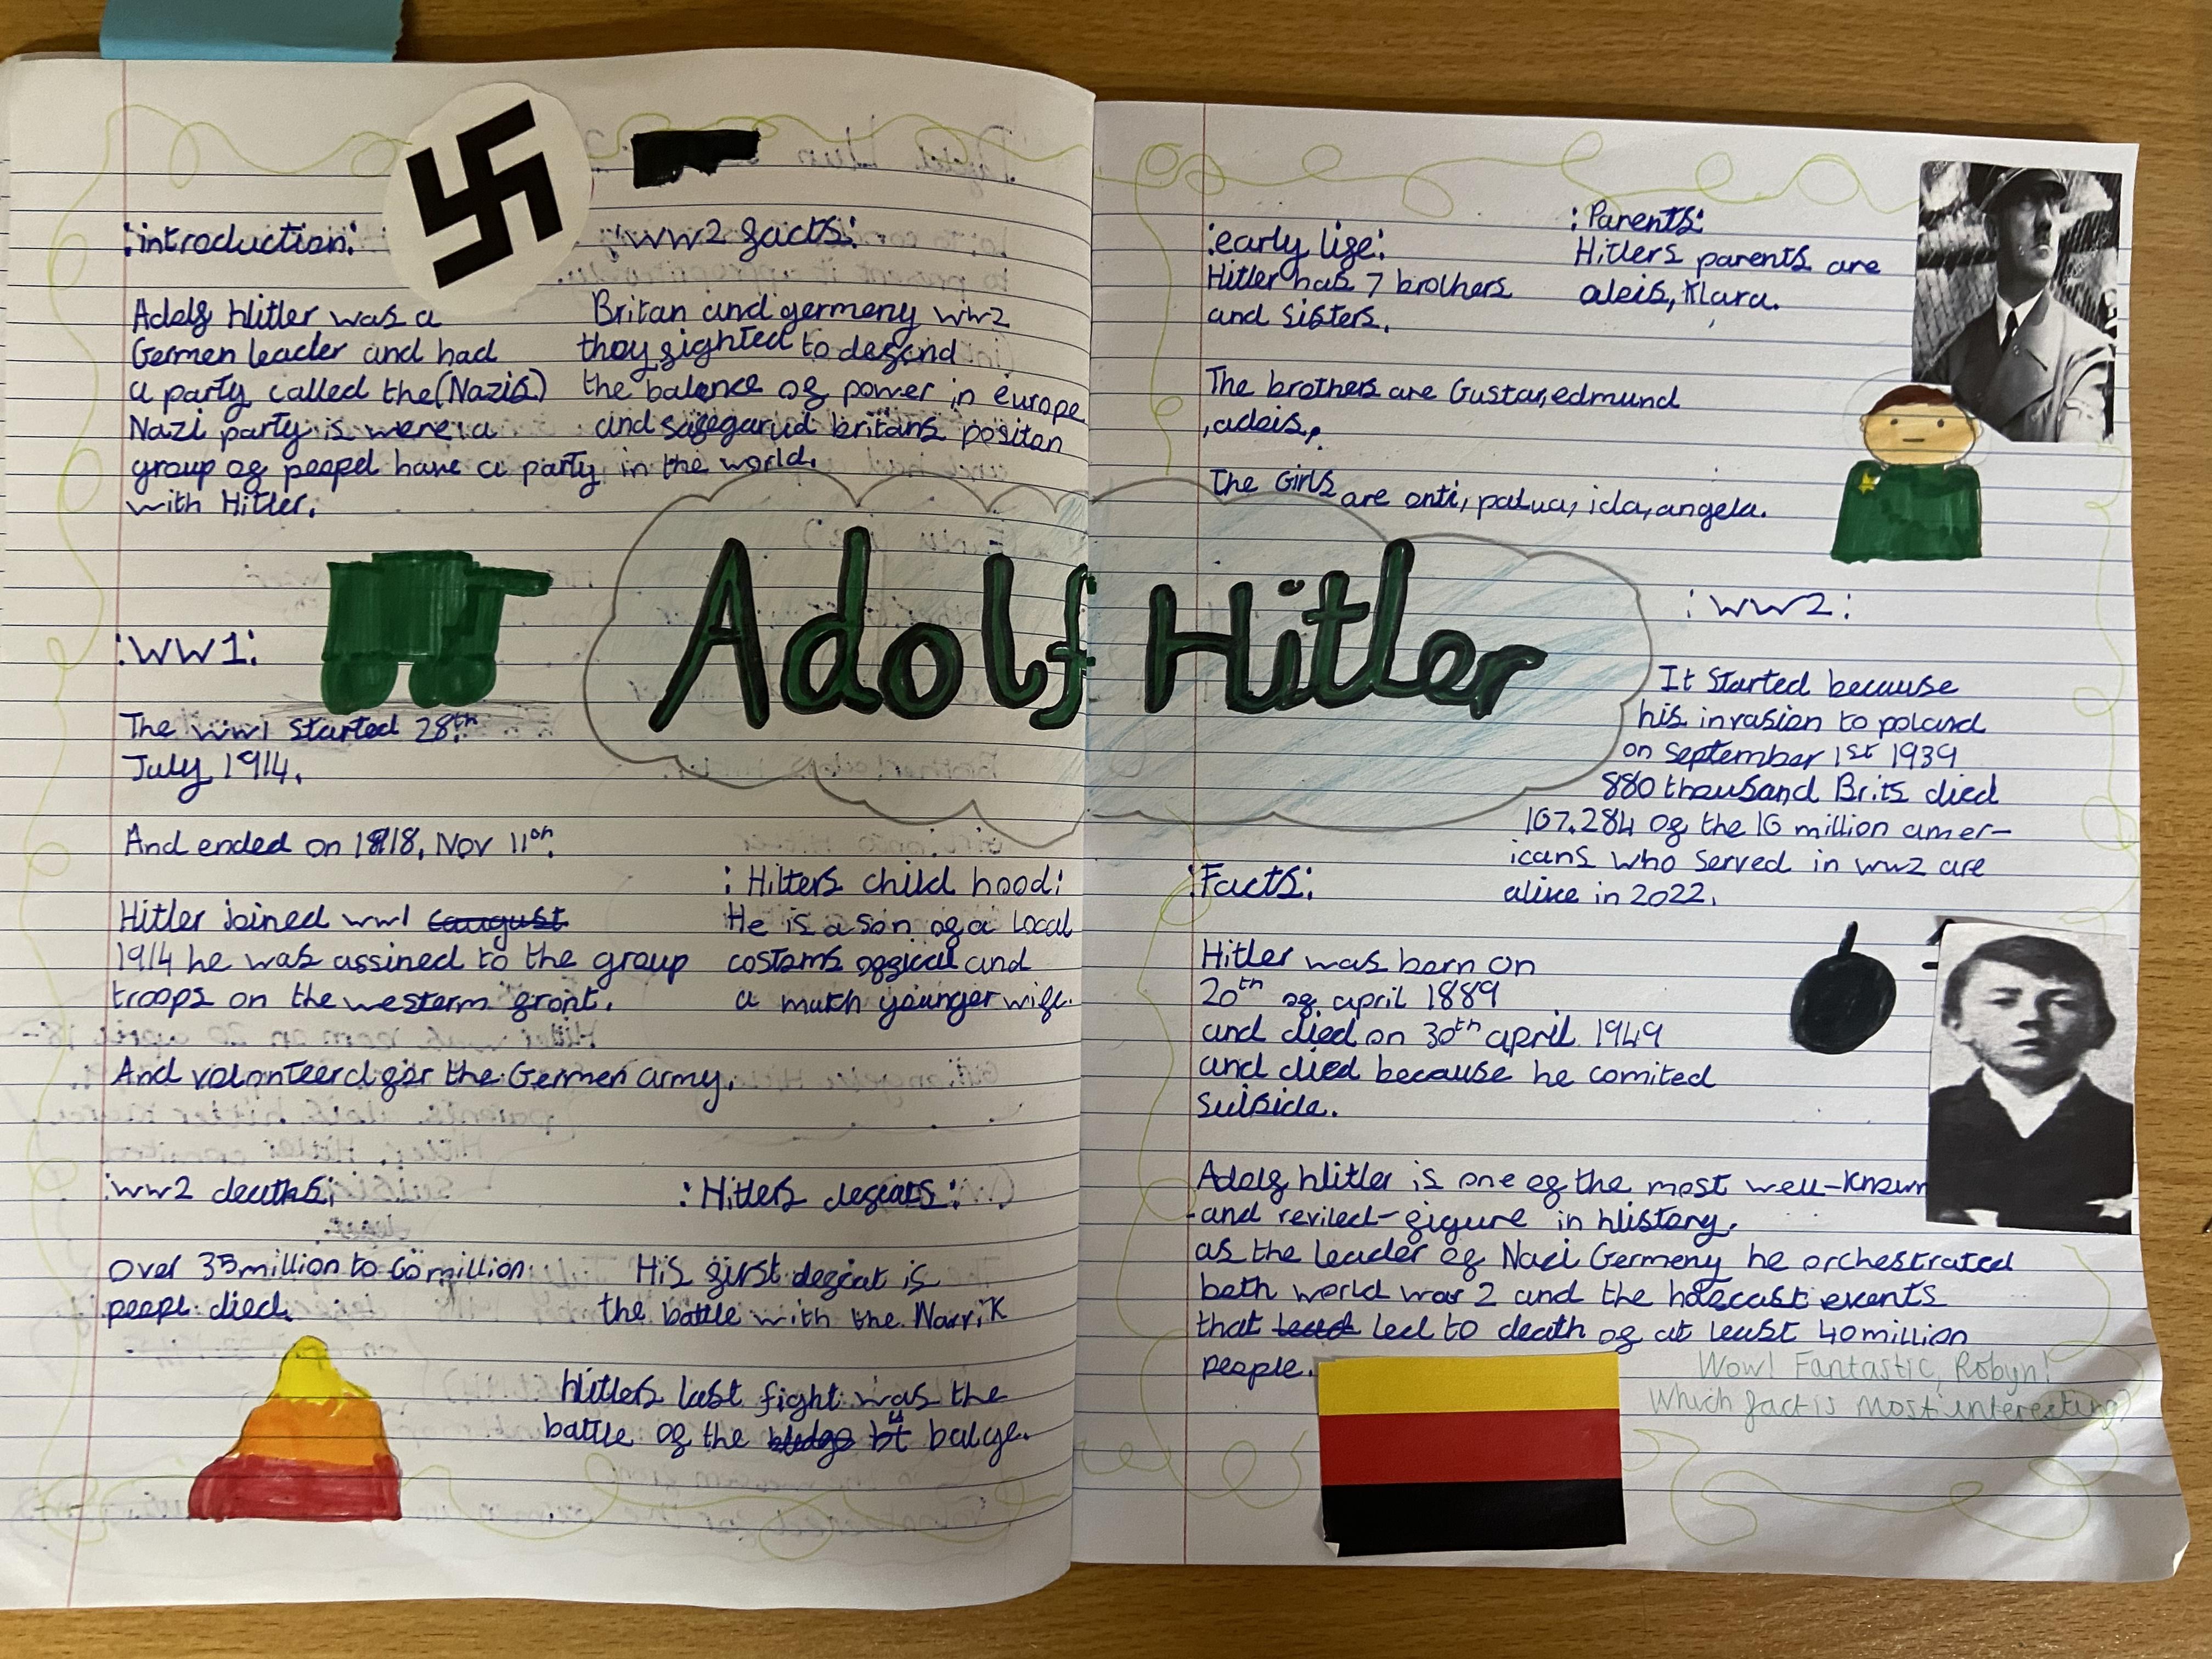 :introduction:
Adolf Hitler was a
Germen leader and had
a party called the (Nazis)
Nazi party is were a
group of peopel have a party
with Hitler.
:WW2 facts:
Britan and germeny ww2
they fighted to defend
the balence of power in europe
and safegarud britans positon
in the world.
Adolf Hitler
:WW1:
The ww1 started 28th
July 1914.
And ended on 1918, Nov 11on.
Hitler joined ww1
1914 he was assined to the group
troops on the westerm front.
And volonteerd for the Germen army.
:Hilters child hood:
He is a son of a Local
costams offical and
a mutch younger wife.
:ww2 deaths:
over 35 million to 60 million
peopl died.
:Hitlers defeats:
His first defeat is
the battle with the Narvik
Hitlers last fight was the
battle of the balge.
:early life:
Hitler has 7 brothers
and sisters.
The brothers are Gustav, edmund
,alois,
The Girls are onti, palua, ida, angela.
:Parents:
Hitlers parents are
alois, Klara.
:WW2:
It started because
his invasion to poland
on september 1st 1939
880 thousand Brits died
167.284 of the 16 million amer-
icans who served in ww2 are
alive in 2022.
:Facts:
Hitler was born on
20th of april 1889
and died on 30th april 1949
and died because he comited
suiside.
Adolf Hitler is one of the most well-known
-and reviled- figure in history.
as the leader of Nazi Germeny he orchestrated
both world war 2 and the holecast events
that led to death of at least 40 million
people.
Wow! Fantastic, Robyn!
Which fact is most interesting?